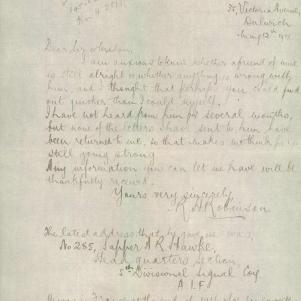 35, Victoria Avenue,
Dulwich
12th
Dear Sir or Madam,
I am anxious to know whether a friend of mine
is still alright or whether anything is wrong with
him, and I thought that perhaps you could find
out quicker than I could myself.
I have not heard from him for several months,
but none of the letters I have sent to him have
been returned to me, so that makes me think he is
still going strong
Any information you can let me have will be
thankfully received.
Yours very sincerely
R. H. Robinson
The latest address that he gave me was,
No 285, Sapper A R Hawke,
Headquarters Section
5th Divisional Signal Coy
A.I.F.